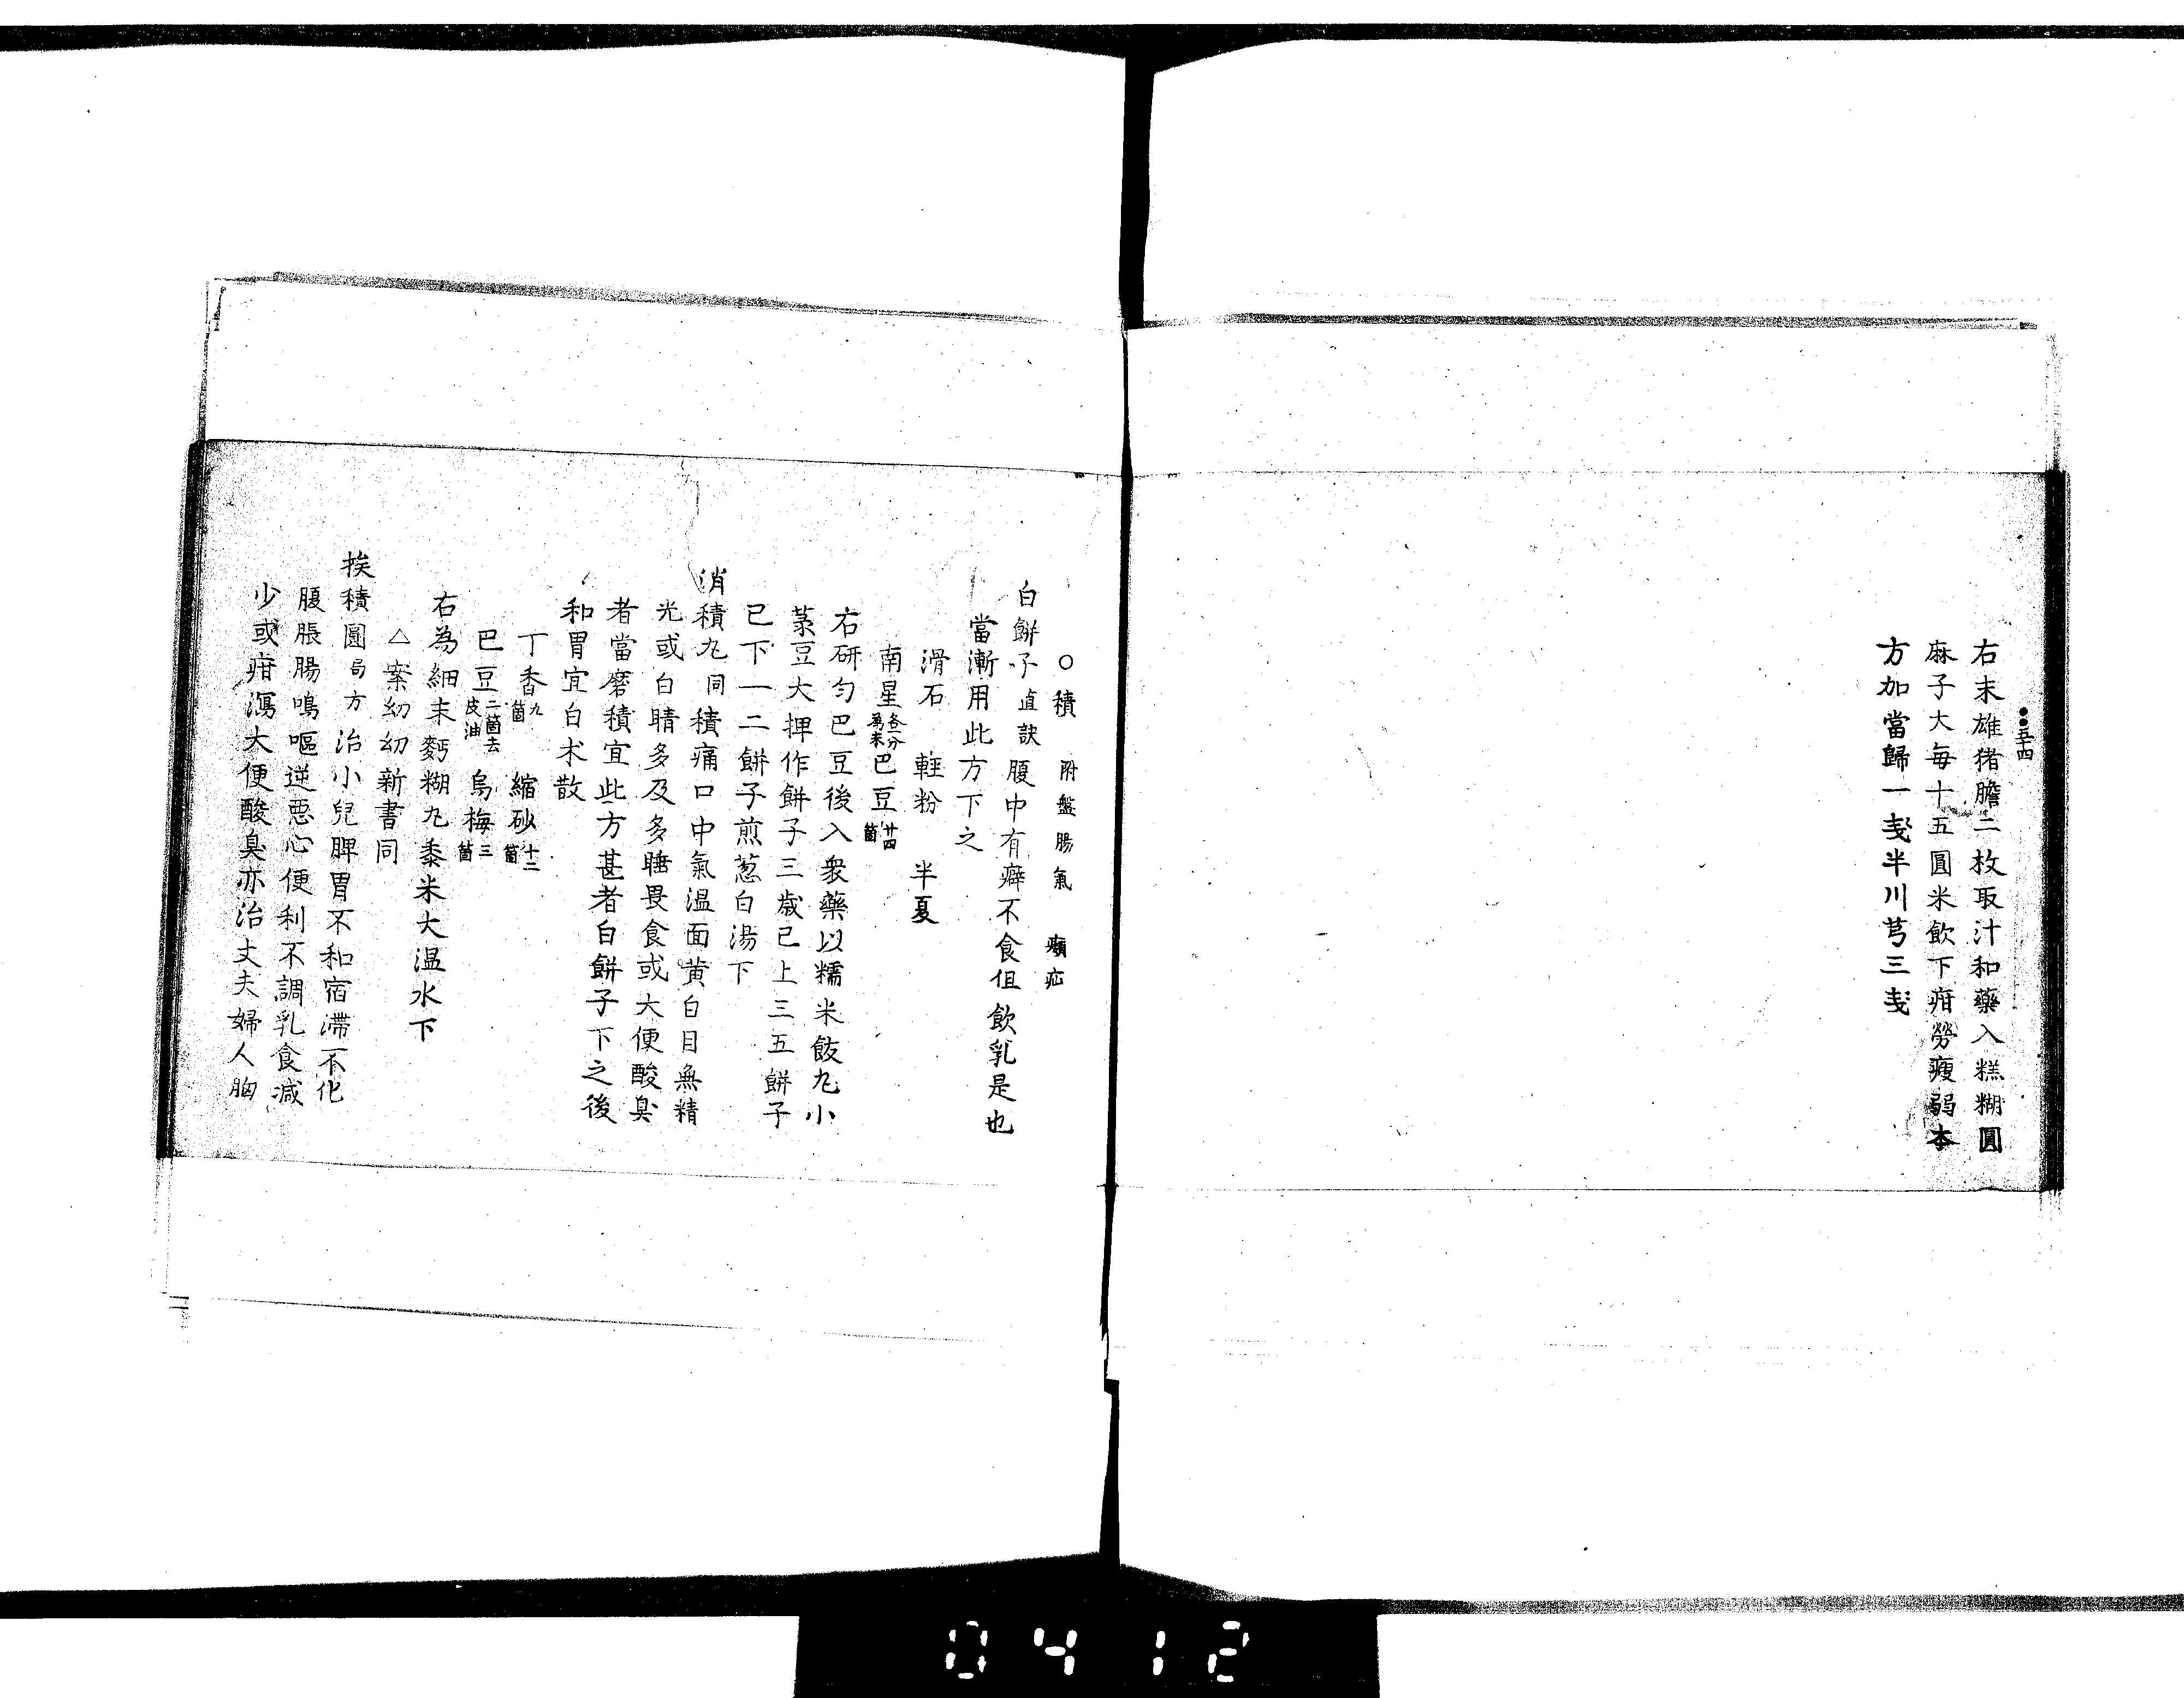 ●●五十四
右末雄猪膽二枚取汁和藥入糕糊圓
麻子大毎十五圓米飲下疳勞瘦弱本
方加當歸一戔半川芎三戔
○積 附盤腸氣 㿗疝
白餅子直訣腹中有癖不食但飲乳是也
當漸用此方下之
滑石 輕粉 半夏
南星各一分為末巴豆廿四箇
右研勻巴豆後入衆藥以糯米飯丸小
菉豆大捍作餅子三歳已上三五餅子
已下一二餅子煎葱白湯下
消積丸同積痛口中氣温面黄白目無精
光或白睛多及多睡畏食或大便酸臭
者當磨積宜此方甚者白餅子下之後
和胃宜白朮散
丁香九箇 縮砂十二箇
巴豆二箇去皮油 烏梅三箇
右為細末麪糊丸黍米大温水下
△案幼幼新書同
挨積圓局方治小兒脾胃不和宿滯不化
腹脹腸鳴嘔逆惡心便利不調乳食減
少或疳瀉大便酸臭亦治丈夫婦人胸
0412